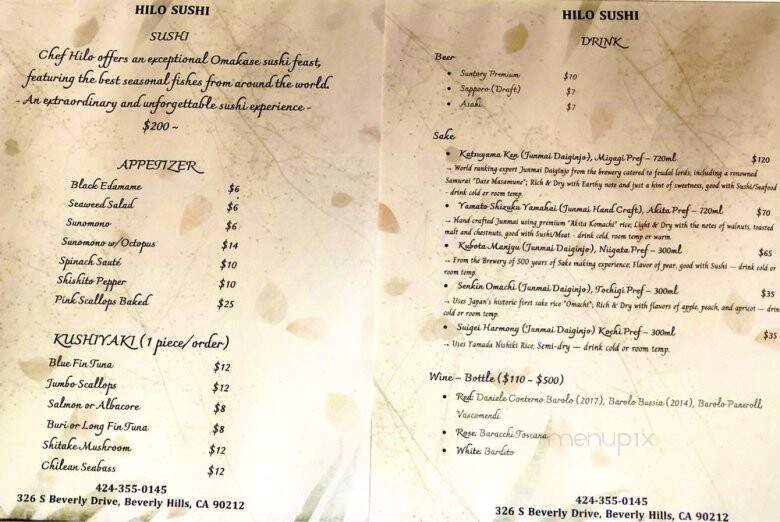 HILO SUSHI
SUSHI
Chef Hilo offers an exceptional Omakase sushi feast,
featuring the best seasonal fishes from around the world.
- An extraordinary and unforgettable sushi experience -
$200 ~
APPETIZER
Black Edamame $6
Seaweed Salad $6
Sunomono $6
Sunomono w/ Octopus $14
Spinach Sauté $10
Shishito Pepper $10
Pink Scallops Baked $25
KUSHIYAKI (1 piece/order)
Blue Fin Tuna $12
Jumbo Scallops $12
Salmon or Albacore $8
Buri or Long Fin Tuna $8
Shitake Mushroom $12
Chilean Seabass $12
424-355-0145
326 S Beverly Drive, Beverly Hills, CA 90212
HILO SUSHI
DRINK
Beer
• Suntory Premium $10
• Sapporo (Draft) $7
• Asahi $7
Sake
• Katsuyama Ken (Junmai Daiginjo), Miyagi Pref – 720ml $120
→ World ranking expert Junmai Daiginjo from the brewery catered to feudal lords, including a renowned
Samurai "Date Masamune"; Rich & Dry with Earthy note and just a hint of sweetness, good with Sushi/Seafood
- drink cold or room temp.
• Yamato Shizuku Yamahai (Junmai Hand Craft), Akita Pref – 720ml $70
→ Hand crafted Junmai using premium "Akita Komachi" rice; Light & Dry with the notes of walnuts, toasted
malt and chestnuts, good with Sushi/Meat - drink cold, room temp or warm.
• Kubota Manjyu (Junmai Daiginjo), Niigata Pref – 300ml $65
→ From the Brewery of 500 years of Sake making experience; Flavor of pear, good with Sushi — drink cold or
room temp.
• Senkin Omachi (Junmai Daiginjo), Tochigi Pref – 300ml $35
→ Uses Japan's historic first sake rice "Omachi"; Rich & Dry with flavors of apple, peach, and apricot — drin
cold or room temp.
• Suigei Harmony (Junmai Daiginjo) Kochi Pref – 300ml $35
→ Uses Yamada Nishiki Rice; Semi-dry — drink cold or room temp.
Wine – Bottle ($110 - $500)
• Red: Daniele Conterno Barolo (2017), Barolo Bussia (2014), Barolo Paneroll,
Vascomendi
• Rose: Baracchi Toscana
• White: Bardito
menupix
424-355-0145
326 S Beverly Drive, Beverly Hills, CA 90212